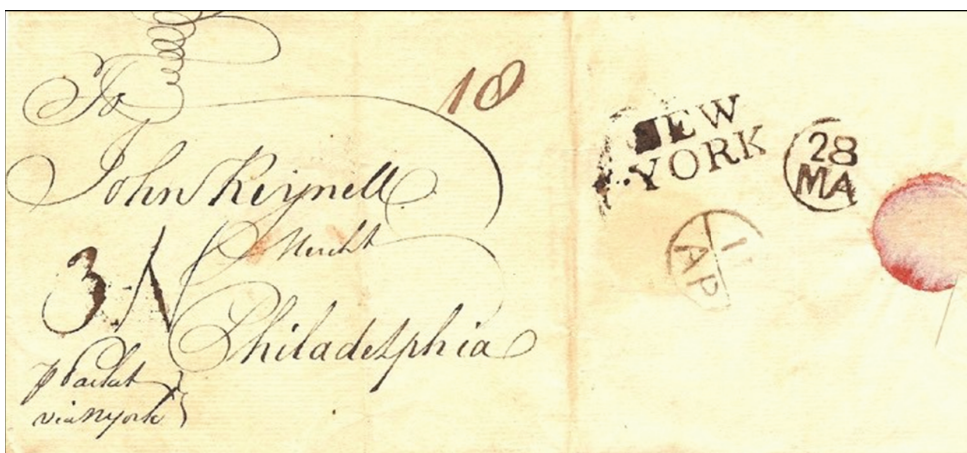 To
18
John Reynell
Mercht
Philadelphia
3 N
p Packet
via N York
NEW
YORK
28
MA
AP